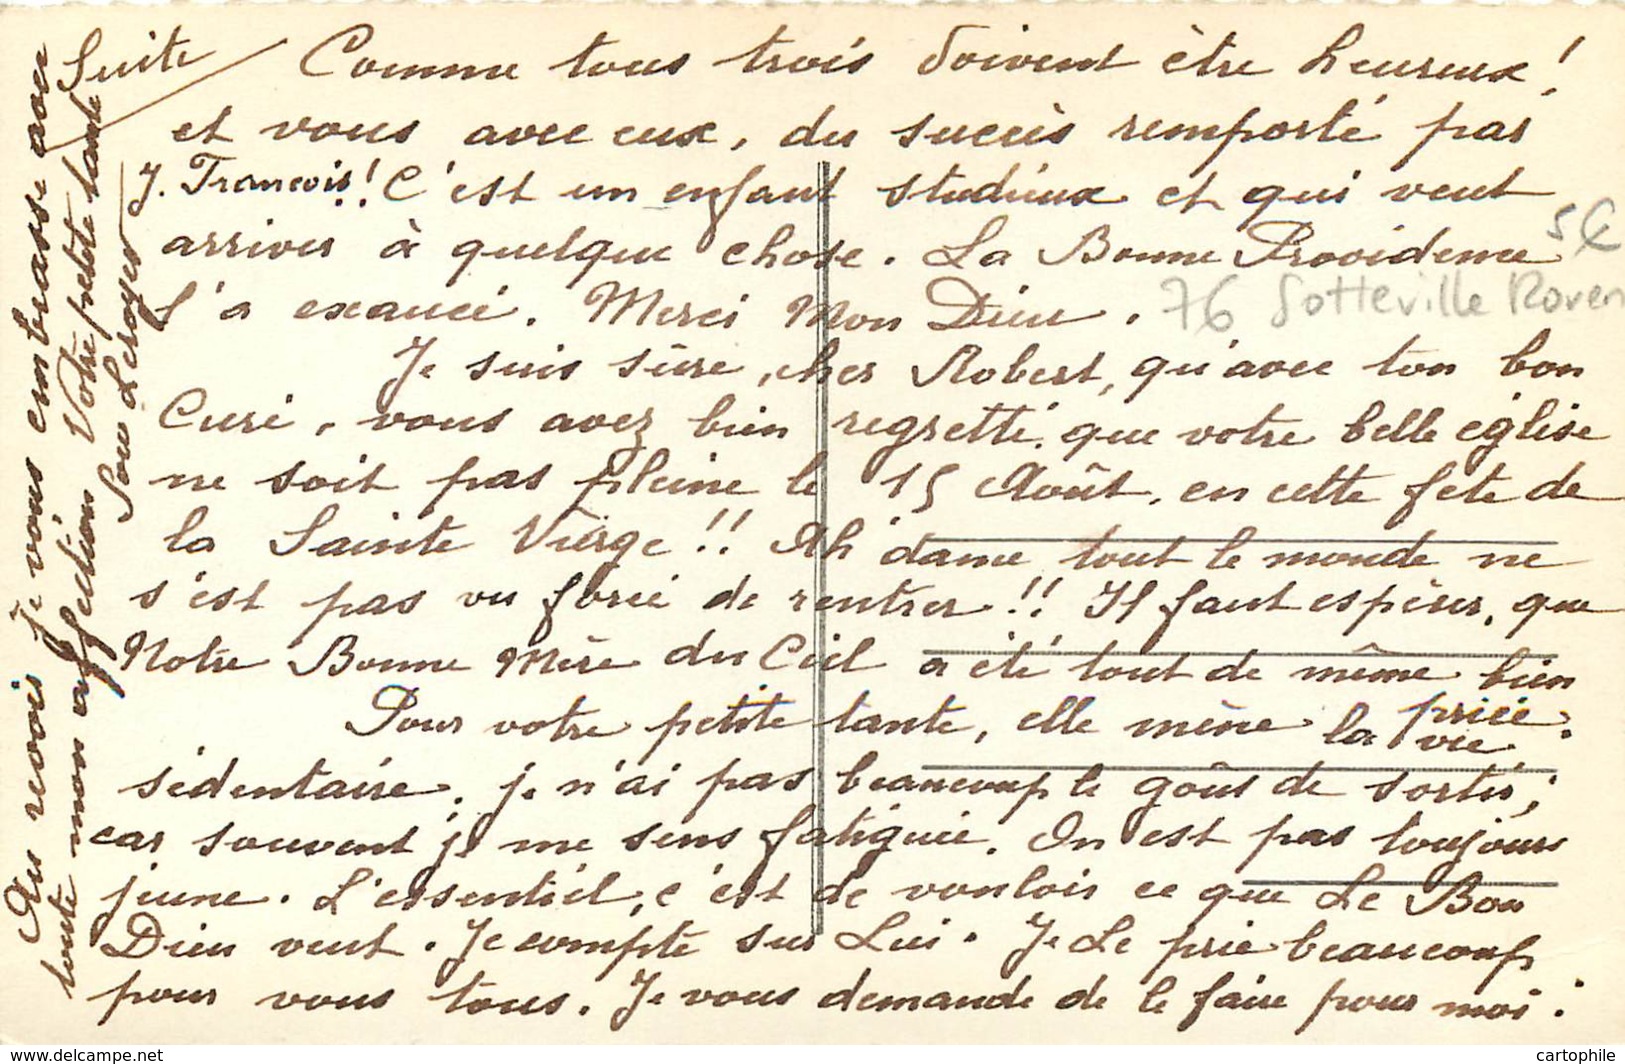 Suite
Comme tous trois doivent être heureux !
et vous avec eux, du succès remporté par
J. François !! C'est un enfant studieux et qui veut
arriver à quelque chose. La Bonne Providence
l'a exaucé. Merci Mon Dieu.
5€
76 Sotteville Rouen
Je suis sûre, cher Robert, qu'avec ton bon
Curé, vous avez bien regretté, que votre belle église
ne soit pas pleine le 15 Août, en cette fete de
la Sainte Vierge !! Ah dame tout le monde ne
s'est pas vu forcé de rentrer !! Il faut espérer, que
Notre Bonne Mère du Ciel a été tout de même bien
priée.
Pour votre petite tante, elle mène la vie
sédentaire, je n'ai pas beaucoup le goût de sortir ;
car souvent je me sens fatiguée. On est pas toujours
jeune. L'essentiel, c'est de vouloir ce que Le Bon
Dieu veut. Je compte sur Lui. Je Le prie beaucoup
pour vous tous. Je vous demande de le faire pour moi.
Au revoir Je vous embrasse avec
toute mon affection Votre petite tante
Lerayer
cartophile.com